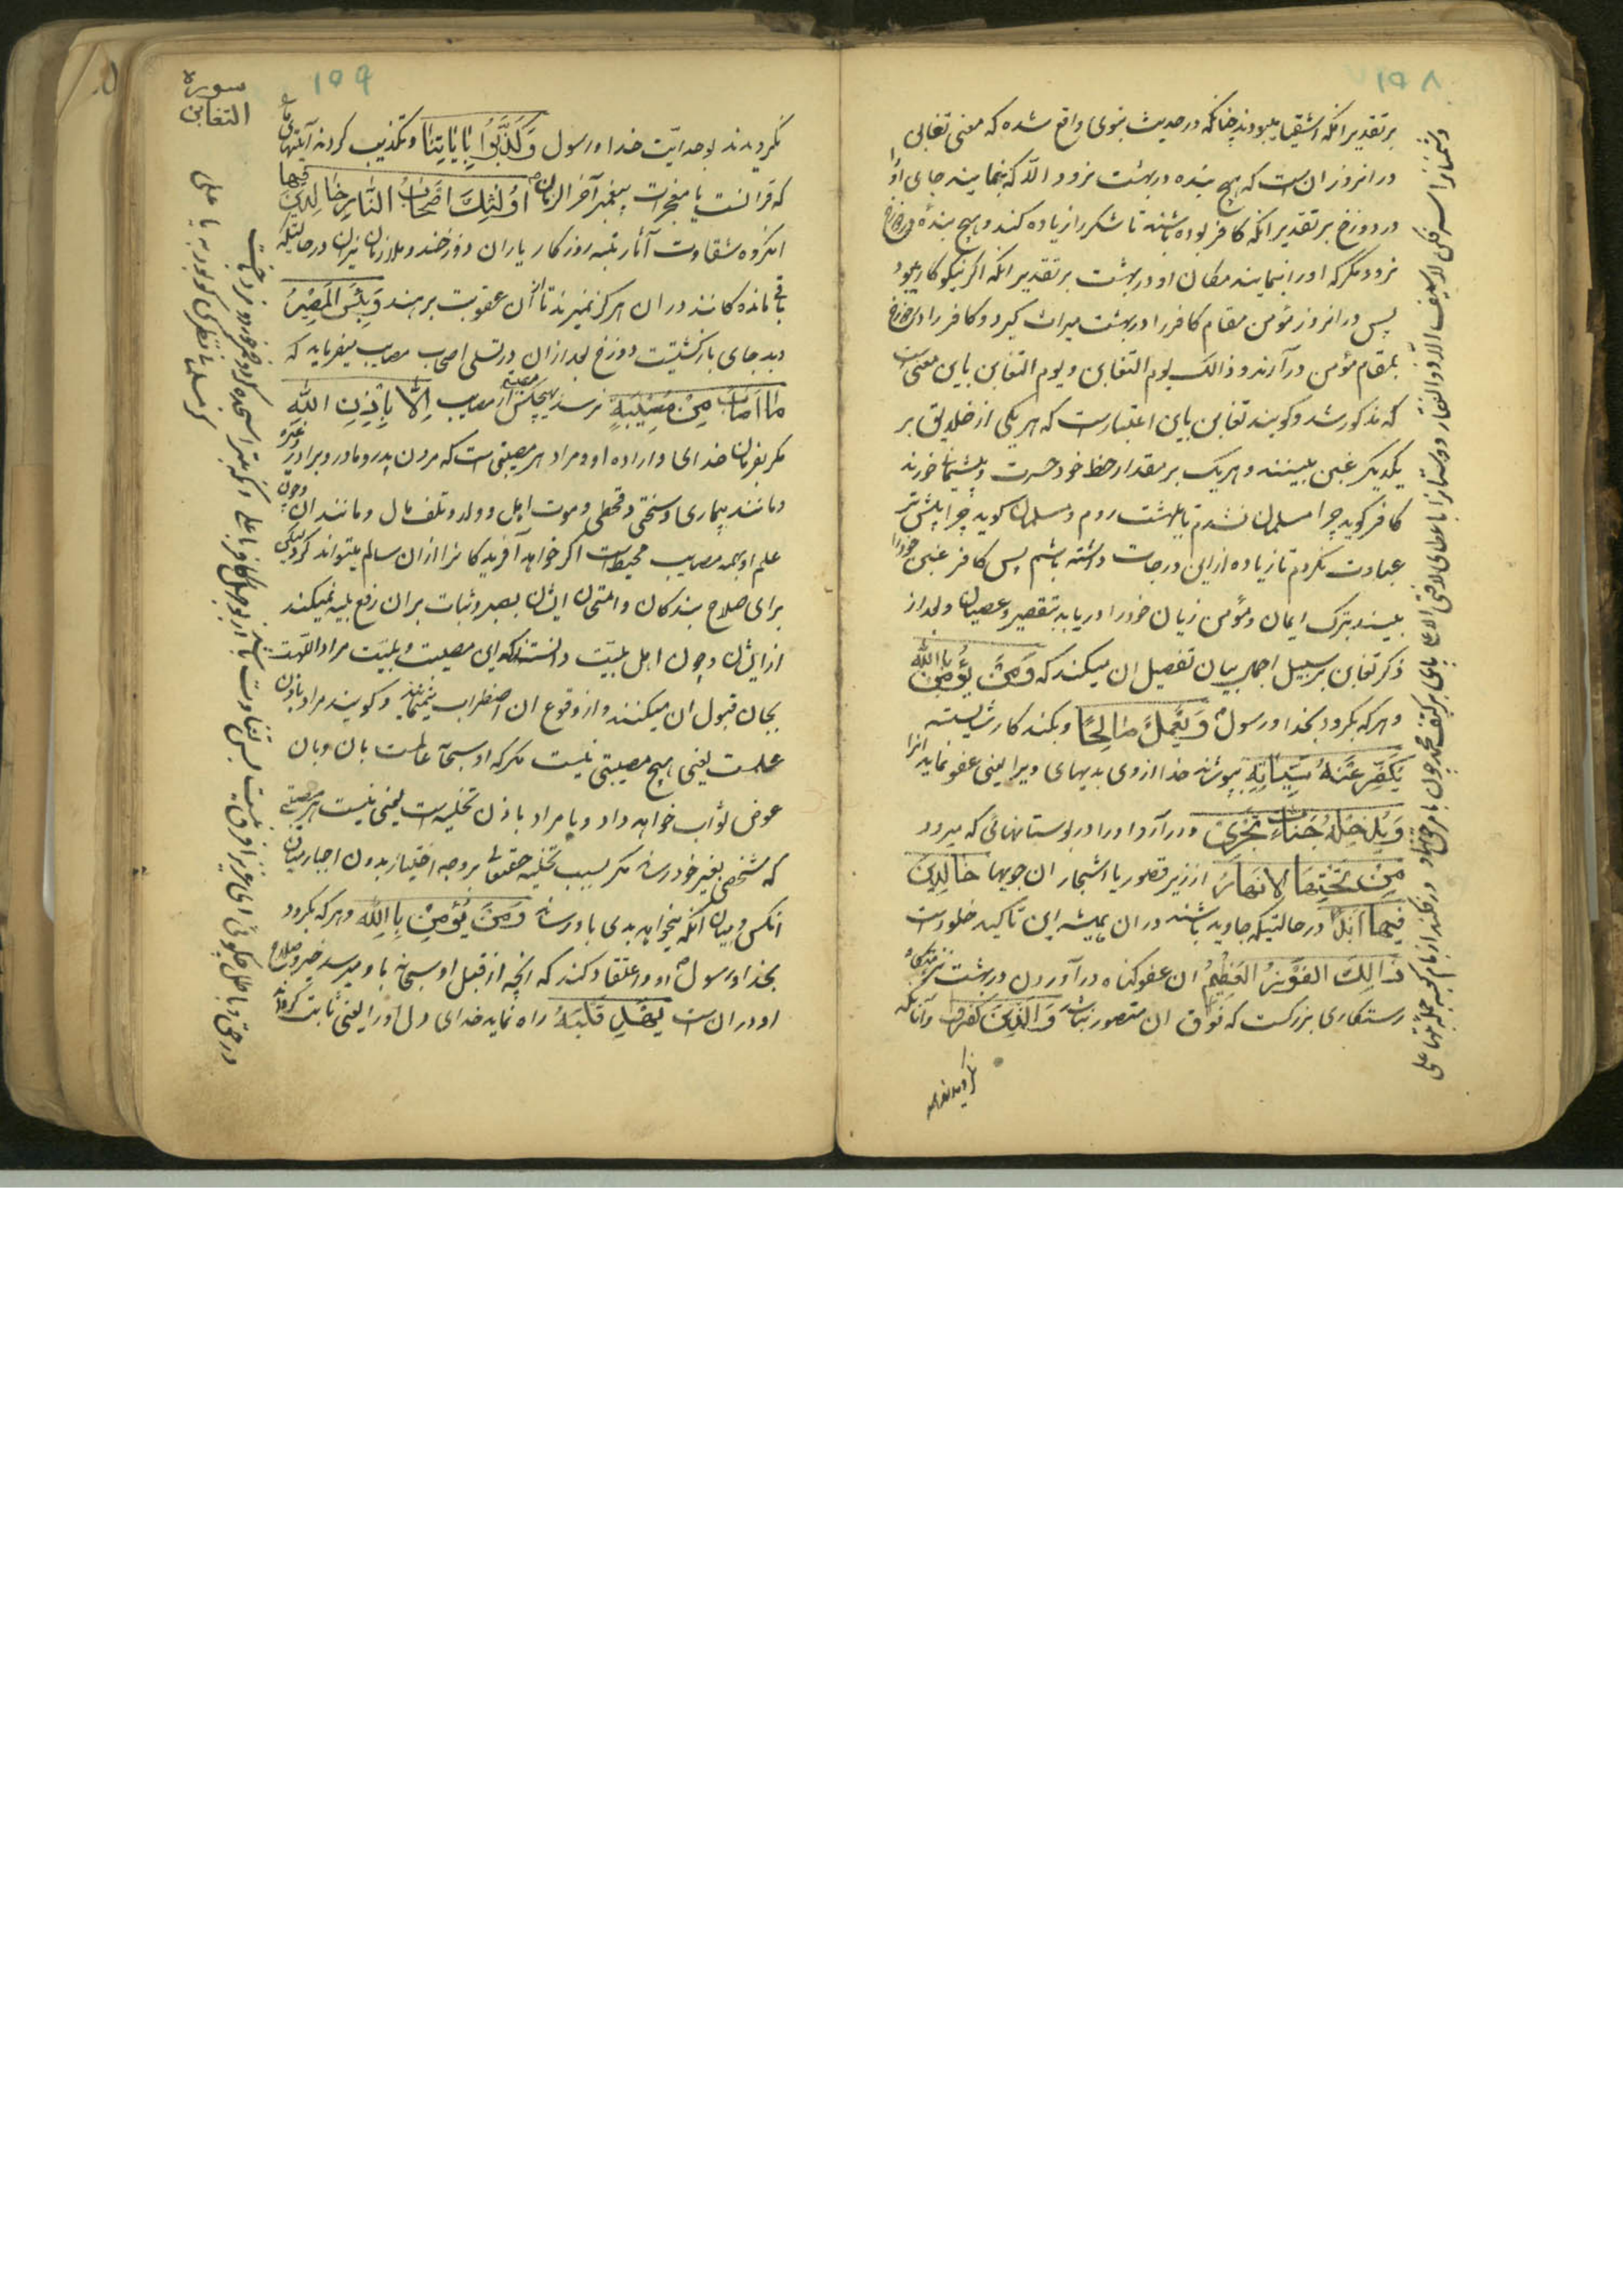 ۱۵۸
بر تقدیر انکه اشقیا میبودند چنانکه در حدیث نبوی واقع شده که معنی تغابن
در انروز ان است که هیچ بنده در بهشت نرود الّا که بنمایند جای او را
در دوزخ بر تقدیر انکه کافر بوده باشد تا شکر را زیاده کند و هیچ بندهٔ در دوزخ
نرود مگر که او را بنمایند مکان او در بهشت بر تقدیر انکه اگر نیکوکار میبود
پس در انروز مؤمن مقام کافر را در بهشت میراث گیرد و کافر را در دوزخ
بمقام مؤمن درآرند و ذالک یوم التغابن و یوم التغابن باین معنی است
که مذکور شد و کویند تغابن باین اعتبارست که هر یکی از خلایق بر
یکدیکر غبن بینند و هر یک بر مقدار حظ خود حسرت و پشیمانی خورند
کافر کوید چرا مسلمان نشدم تا ببهشت روم و مسلمان کوید چرا بیشتر
عبادت نکردم تا زیاده ازاین درجات داشته باشم پس کافر غبن خود را
بیند بترک ایمان و مؤمن زیان خود را دریابد بتقصیر و عصیان و بعد از
ذکر تغابن بر سبیل اجمال بیان تفصیل ان میکند که وَمَنْ یُؤْمِنْ بِاللّٰه
و هر که بکرود بخدا و رسول وَیَعْمَلْ صَالِحًا و بکند کار شایسته
یُکَفِّرْ عَنْهُ سَیِّئَاتِهِ بپوشاند خدا از وی بدیهای ویرا یعنی عفو نماید انرا
وَیُدْخِلْهُ جَنَّاتٍ تَجْرِی و درآرد او را در بوستانهائی که میرود
مِنْ تَحْتِهَا الْاَنْهَارُ از زیر قصور یا اشجار ان جویها خَالِدِینَ
فِیهَا اَبَدًا در حالتیکه جاوید باشند در ان همیشه این تاکید خلودست
ذَالِکَ الْفَوْزُ الْعَظِیمُ ان عفو کناه و درآوردن در بهشت
رستکاری بزرکست که فوق ان متصور نباشد وَالَّذِینَ کَفَرُوا و آنانکه
نکرویدند
۱۵۹
سورة
التغابن
نکرویدند بوحدانیّت خدا و رسول وَکَذَّبُوا بِایَاتِنَا و تکذیب کردند آیتهای ما
که قرانست یا معجزات پیغمبر آخر الزمان اُولٰئِکَ اَصْحَابُ النَّارِ خَالِدِینَ فِیهَا
انکروه شقاوت آثار تبه روزکار یاران دوزخند و ملازمان نیران در حالتیکه
باقی مانده کانند در ان هرکز نمیرند تا از ان عقوبت برهند وَبِئْسَ الْمَصِیرُ
و بد جای بازکشتیست دوزخ بعد ازان در تسلی اصحاب مصایب میفرماید که
مَا اَصَابَ مِنْ مُصِیبَةٍ نرسد بهیچکس از مصایب اِلَّا بِاِذْنِ اللّٰهِ
مکر بفرمان خدای و اراده او و مراد هر مصیبتی است که مردن پدر و مادر و برادر و غیره
و مانند بیماری و سختی و قحطی و موت اهل و ولد و تلف مال و مانند ان و چون
علم او بهمه مصایب محیط است اکر خواهد آفریدکانرا ازان سالم میتواند کرد لیکن
برای صلاح بندکان و امتحان ایشان بصبر و ثبات بران رفع بلیه نمیکند
از ایشان و چون اهل بلیّت دانستند که این مصیبت و بلیّت مراد اللّهست
بجان قبول ان میکنند و از وقوع ان اضطراب نمینمایند و کویند مراد باذن
علمست یعنی هیچ مصیبتی نیست مکر که او سبحانه عالمست بان و بان
عوض ثواب خواهد داد و یا مراد باذن تخلیه است یعنی نیست هر مصیبتی
که شخصی بغیر خود رساند مکر بسبب تخلیه حقتعالی بر وجه اختیار بدون اجبار میان
انکس و میان انکه میخواهد بدی باو رساند وَمَنْ یُؤْمِنْ بِاللّٰهِ و هر که بکرود
بخدا و رسول او و اعتقاد کند که انچه از قبل او سبحانه باو میرسد خیر و صلاح
او در ان است یَهْدِ قَلْبَهُ راه نماید خدای دل او را یعنی ثابت کرداند